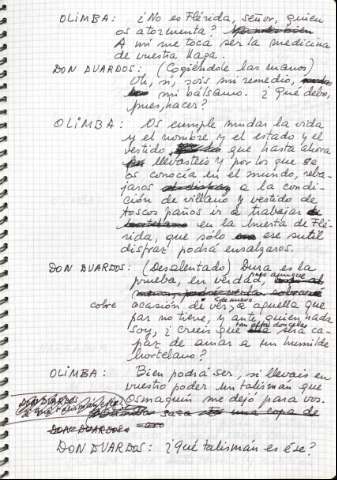 OLIMBA: ¿No es Flérida, señor, quien
os atormenta?
A mí me toca ser la medicina
de vuestra llaga.
DON DUARDOS: (Cogiéndole las manos)
Oh, sí, sois mi remedio,
mi bálsamo. ¿Qué debo,
pues, hacer?
OLIMBA: Os cumple mudar la vida
y el nombre, y el estado y el
vestido que hasta ahora
llevasteis y por los que se
os conocía en el mundo, reba-
jaros a la condi-
ción de villano y vestido de
toscos paños ir a trabajar
en la huerta de Flé-
rida, que sólo ese sutil
disfraz podrá ensalzaros.
DON DUARDOS: (Desalentado) Dura es la
prueba, en verdad, pues aunque
cobre ocasión de ver, a aquella que
par no tiene, y ante quien nada
soy, ¿creéis que será ca-
paz de amar a un humilde
hortelano?
OLIMBA: Bien podrá ser, si lleváis en
vuestro poder un talismán que
Osmaquín me dejó para vos.
saca una copa de
DON DUARDOS
DON DUARDOS: ¿Qué talismán es ése?